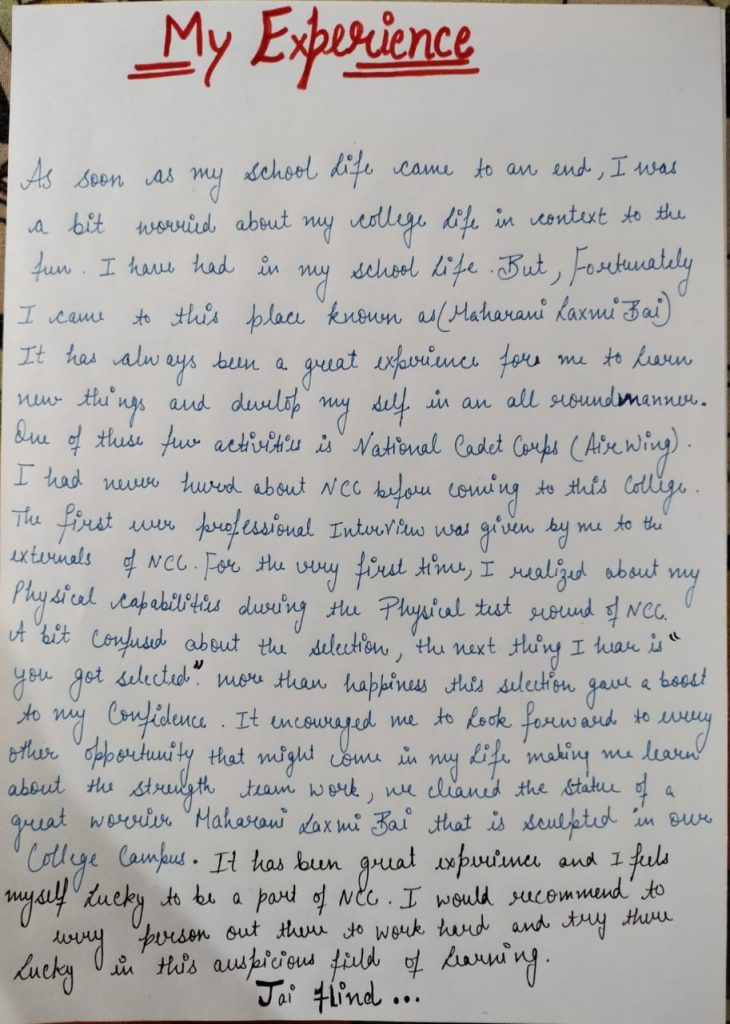 My Experience
As soon as my school life came to an end, I was
a bit worried about my college life in context to the
fun. I have had in my school life. But, Fortunately
I came to this place known as (Maharani Laxmi Bai)
It has always been a great experience fore me to learn
new things and develop my self in an all round manner.
One of these few activities is National Cadet Corps (Air Wing).
I had never heard about NCC before coming to this College.
The first ever professional Interview was given by me to the
externals of NCC. For the very first time, I realized about my
Physical capabilities during the Physical test round of NCC.
A bit Confused about the selection, the next thing I hear is "
you got selected". more than happiness this selection gave a boost
to my Confidence. It encouraged me to look forward to every
other opportunity that might come in my life making me learn
about the strength team work, we cleaned the statue of a
great worrier Maharani Laxmi Bai that is sculpted in our
College Campus. It has been great experience and I feels
myself Lucky to be a part of NCC. I would recommend to
every person out there to work hard and try there
Lucky in this auspicious field of learning.
Jai Hind ...